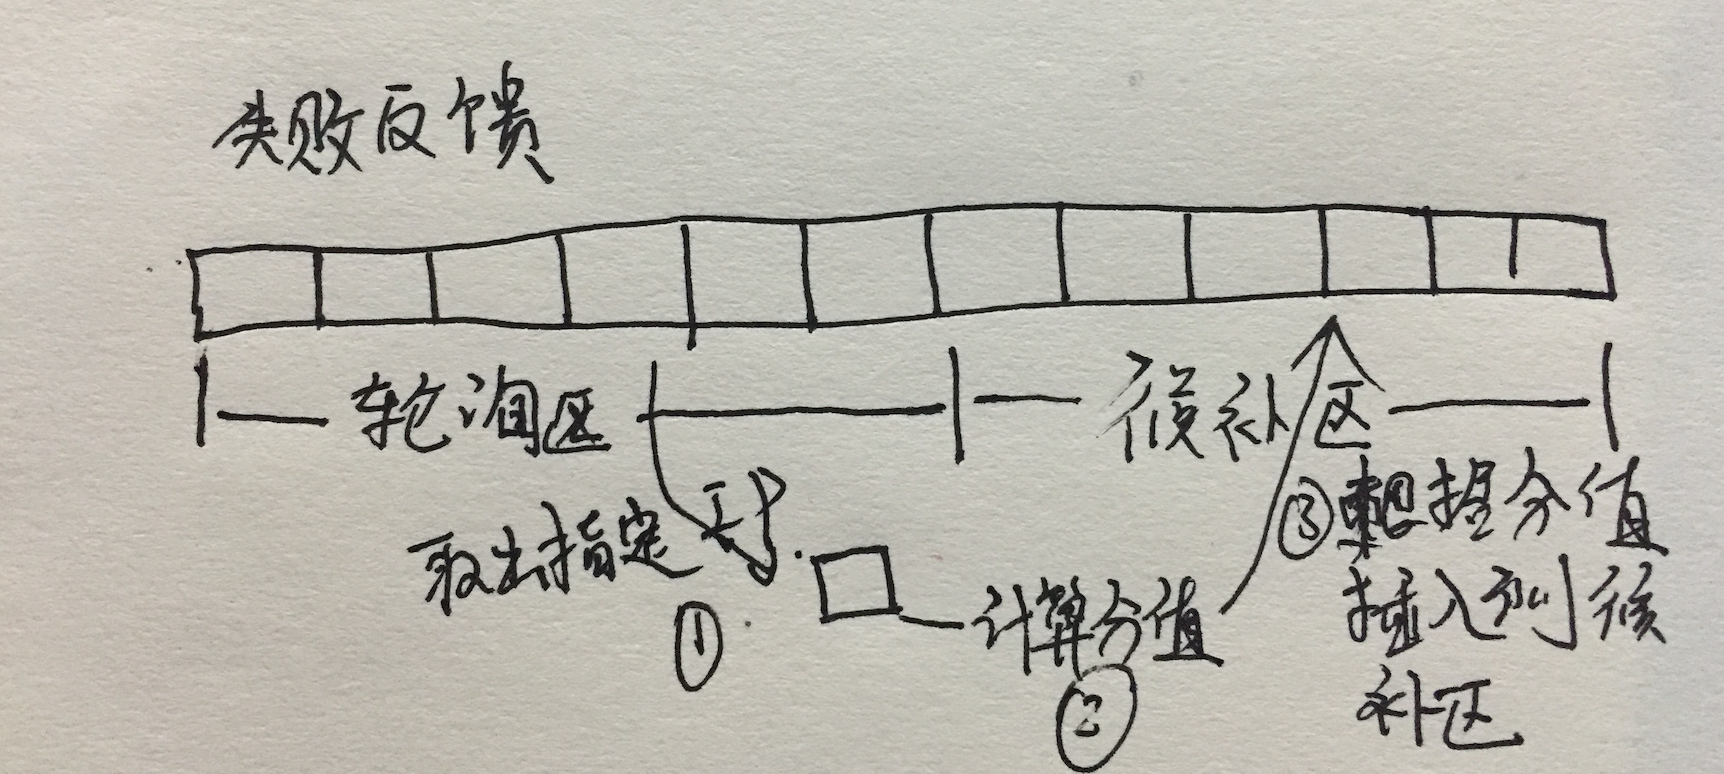 失败反馈
轮询区
候补区
取出指定
①
计算分值
②
③ 根据分值
插入到候
补区